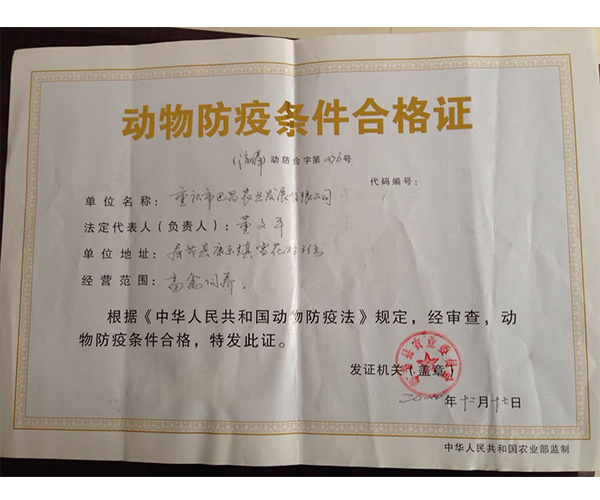 动物防疫条件合格证
动防合字第 号
代码编号：
单位名称：重庆市巴昌农业发展有限公司
法定代表人（负责人）：董文平
单位地址：奉节县康乐镇雪花村
经营范围：畜禽饲养。
根据《中华人民共和国动物防疫法》规定，经审查，动
物防疫条件合格，特发此证。
发证机关（盖章）
年十二月十七日
中华人民共和国农业部监制